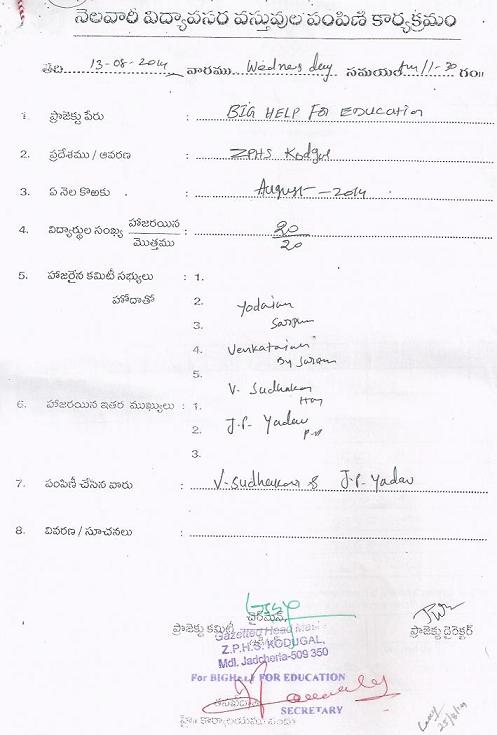 నెలవారీ విద్యావసర వస్తువుల పంపిణీ కార్యక్రమం
తేది 13-08-2014 వారము Wednesday సమయం Am 11-30 గం॥
1. ప్రాజెక్టు పేరు : BIG HELP FOR EDUCATION
2. ప్రదేశము / ఆవరణ : ZPHS Kodgal
3. ఏ నెల కొఱకు : August - 2014
4. విద్యార్థుల సంఖ్య హాజరయిన : 20
మొత్తము 20
5. హాజరైన కమిటీ సభ్యులు : 1.
హోదాతో 2.
3.
4. Venkataiah
5.
V. Sudhakar
6. హాజరయిన ఇతర ముఖ్యులు : 1.
2. J.P. Yadav
3.
7. పంపిణీ చేసిన వారు : V-Sudhakar & J.P-Yadav
8. వివరణ / సూచనలు :
ప్రాజెక్టు కమిటీ చైర్మన్,
ప్రాజెక్టు డైరెక్టర్
Gazetted Head Master
Z.P.H.S. KODUGAL,
Mdl. Jadcherla-509 350
For BIGHELP FOR EDUCATION
SECRETARY